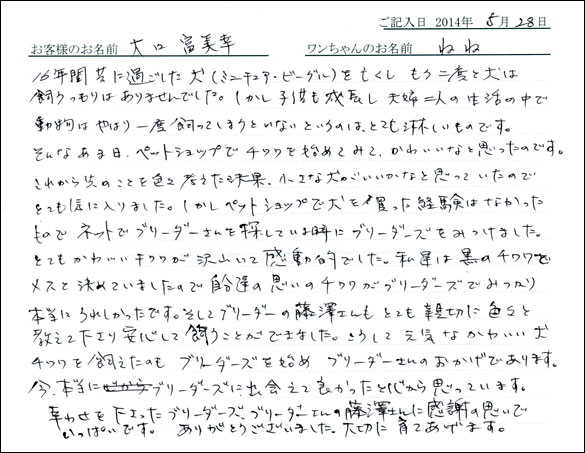 ご記入日 2014年 5月 28日
お客様のお名前 大口 富美幸 ワンちゃんのお名前 ねね
16年間共に過ごした犬(ミニチュア・ビーグル)を亡くし もう二度と犬は
飼うつもりはありませんでした。しかし子供も成長し夫婦二人の生活の中で
動物はやはり一度飼ってしまうといないというのは、とても淋しいものです。
そんなある日、ペットショップでチワワを始めてみて、かわいいなと思ったのです。
これから先のことを色々考えた結果、小さな犬がいいかなと思っていたので
とても気に入りました。しかしペットショップで犬を買った経験はなかった
もので ネットでブリーダーさんを探している時にブリーダーズをみつけました。
とてもかわいいチワワが沢山いて感動的でした。私達は黒のチワワで
メスと決めていましたので自分達の思いのチワワがブリーダーズでみつかり
本当にうれしかったです。そしてブリーダーの藤澤さんもとても親切に色々と
教えて下さり安心して飼うことができました。こうして元気なかわいい犬
チワワを飼えたのも ブリーダーズを始め ブリーダーさんのおかげであります。
今、本当にブリーダーズに出会えて良かったと心から思っています。
幸わせを下さったブリーダーズ、ブリーダーさんの藤澤さんに感謝の思いで
いっぱいです。 ありがとうございました。大切に育てあげます。